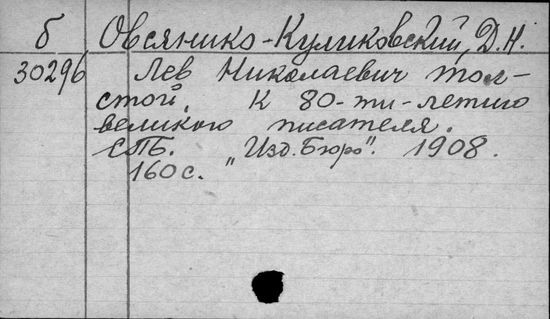 б Овсянико-Куликовский, Д.Н.
30296 Лев Николаевич Тол-
стой. К 80-ти-летию
великого писателя.
СПБ. „Изд. Бюро". 1908.
160 с.